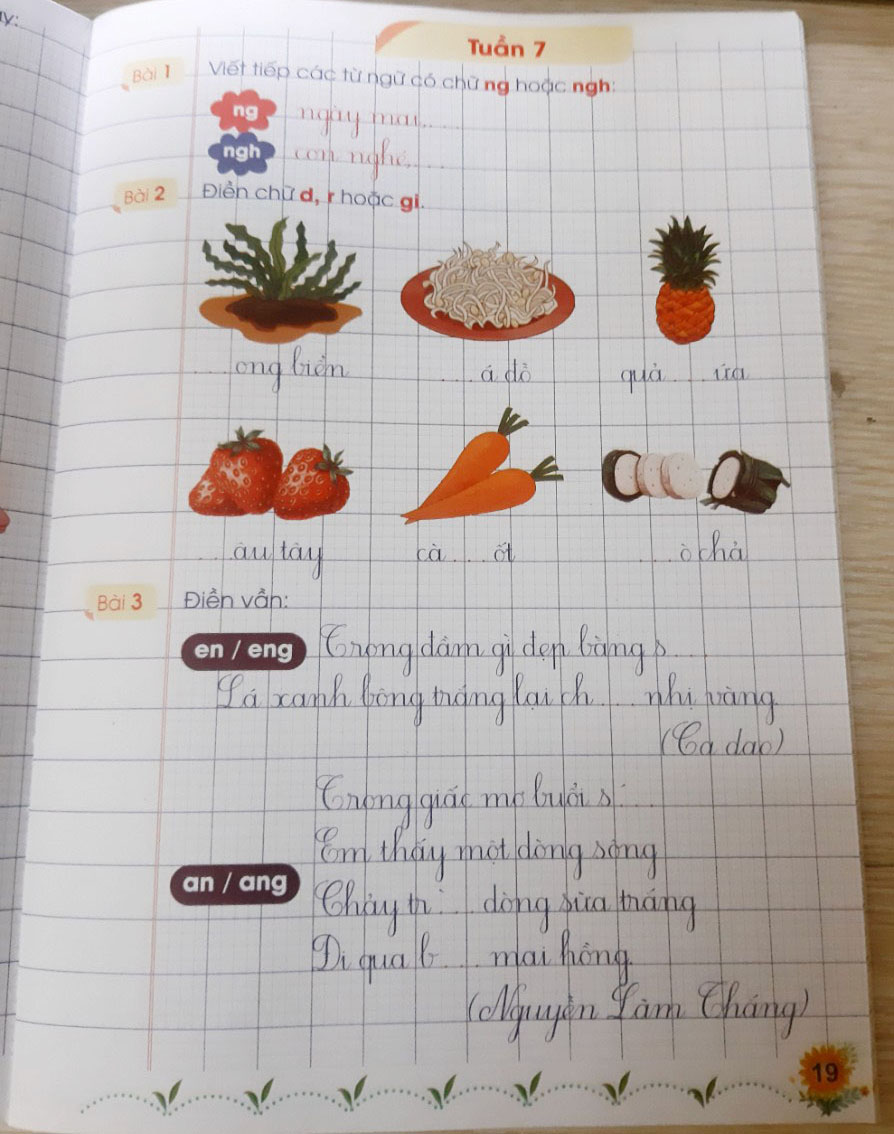 y:
Tuần 7
Bài 1 Viết tiếp các từ ngữ có chữ ng hoặc ngh:
ng ngày mai,....
ngh con nghé,....
Bài 2 Điền chữ d, r hoặc gi.
....ong biển ....á đỗ quả ....ứa
....âu tây cà ....ốt ....ò chả
Bài 3 Điền vần:
en / eng Trong đầm gì đẹp bằng s....
Lá xanh bông trắng lại ch.... nhị vàng
(Ca dao)
Trong giấc mơ buổi s´....
Em thấy một dòng sông
an / ang Chảy tr`.... dòng sữa trắng
Đi qua b.... mai hồng.
(Nguyễn Lãm Thắng)
19